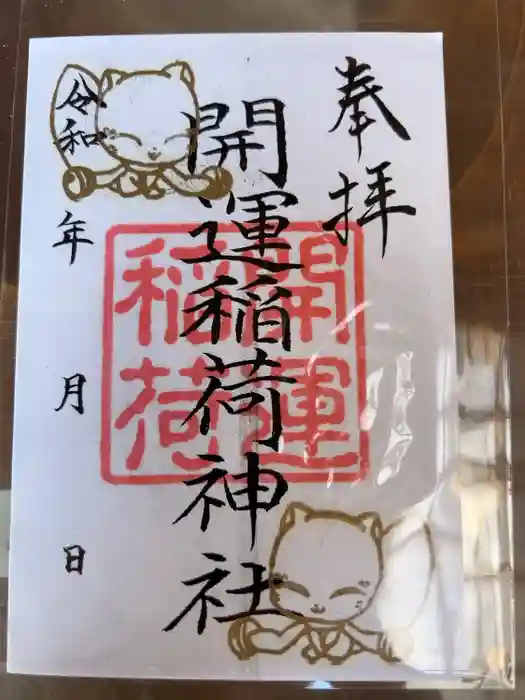 奉拝
開運稲荷神社
開運
稲荷
令和
年 月 日